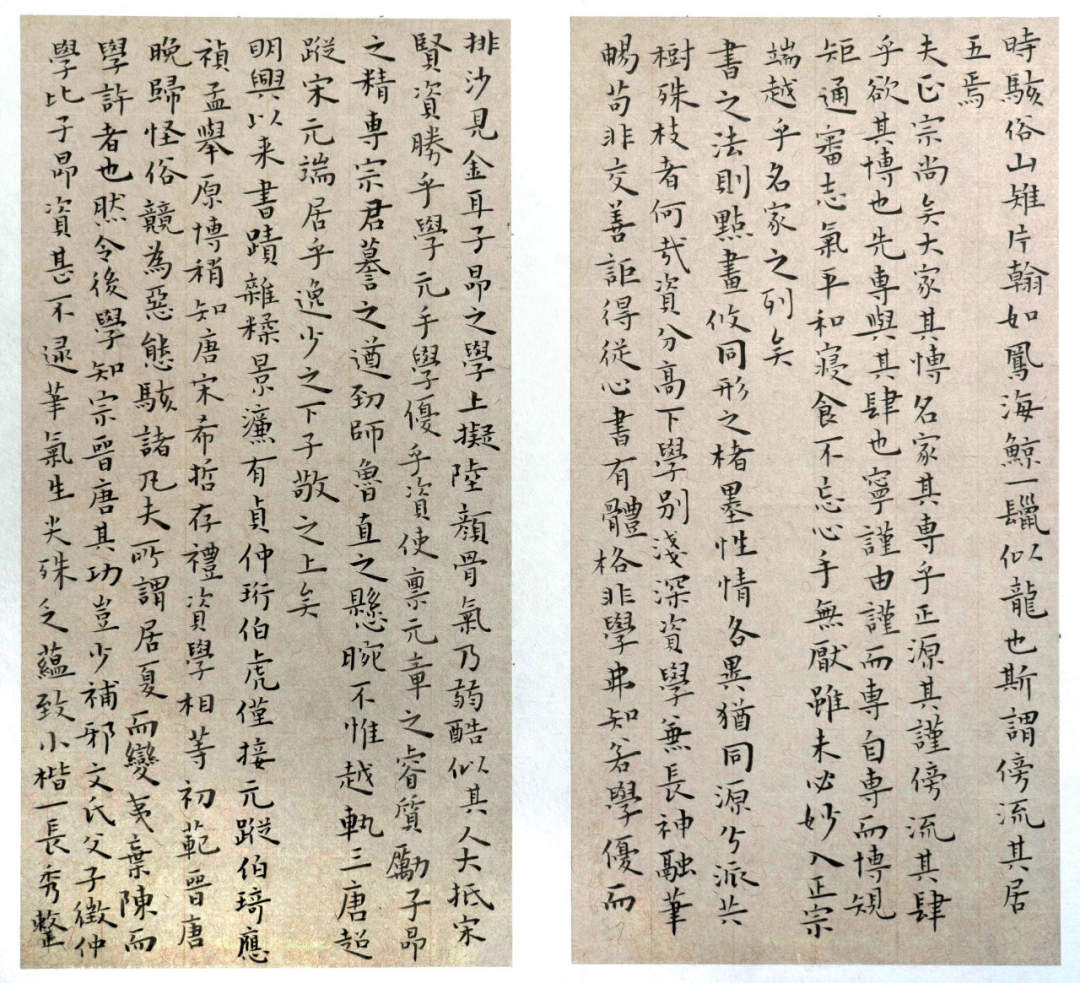 時駭俗山雉片翰如鳳海鯨一鬣似龍也斯謂傍流其居
五焉
夫正宗尚矣大家其博名家其專乎正源其謹傍流其肆
乎欲其博也先專與其肆也寧謹由謹而專自專而博規
矩通審志氣平和寢食不忘心手無厭雖未必妙入正宗
端越乎名家之列矣
書之法則點畫攸同形之楮墨性情各異猶同源分派共
樹殊枝者何哉資分高下學別淺深資學兼長神融筆
暢苟非交善詎得從心書有體格非學弗知若學優而
排沙見金耳子昂之學上擬陸顏骨氣乃弱酷似其人大抵宋
賢資勝乎學元手學優乎資使禀元章之睿質勵子昂
之精專宗君謩之遒勁師魯直之懸腕不惟越軌三唐超
蹤宋元端居乎逸少之下子敬之上矣
明興以来書蹟雜糅景濂有貞仲珩伯虎僅接元蹤伯琦應
禎孟舉原博稍知唐宋希哲存禮資學相等初範晉唐
晚歸怪俗競為惡態駭諸凡夫所謂居夏而變夷棄陳而
學許者也然令後學知宗晉唐其功豈少補邪文氏父子徵仲
學比子昂資甚不逮筆氣生尖殊乏蘊致小楷一長秀整